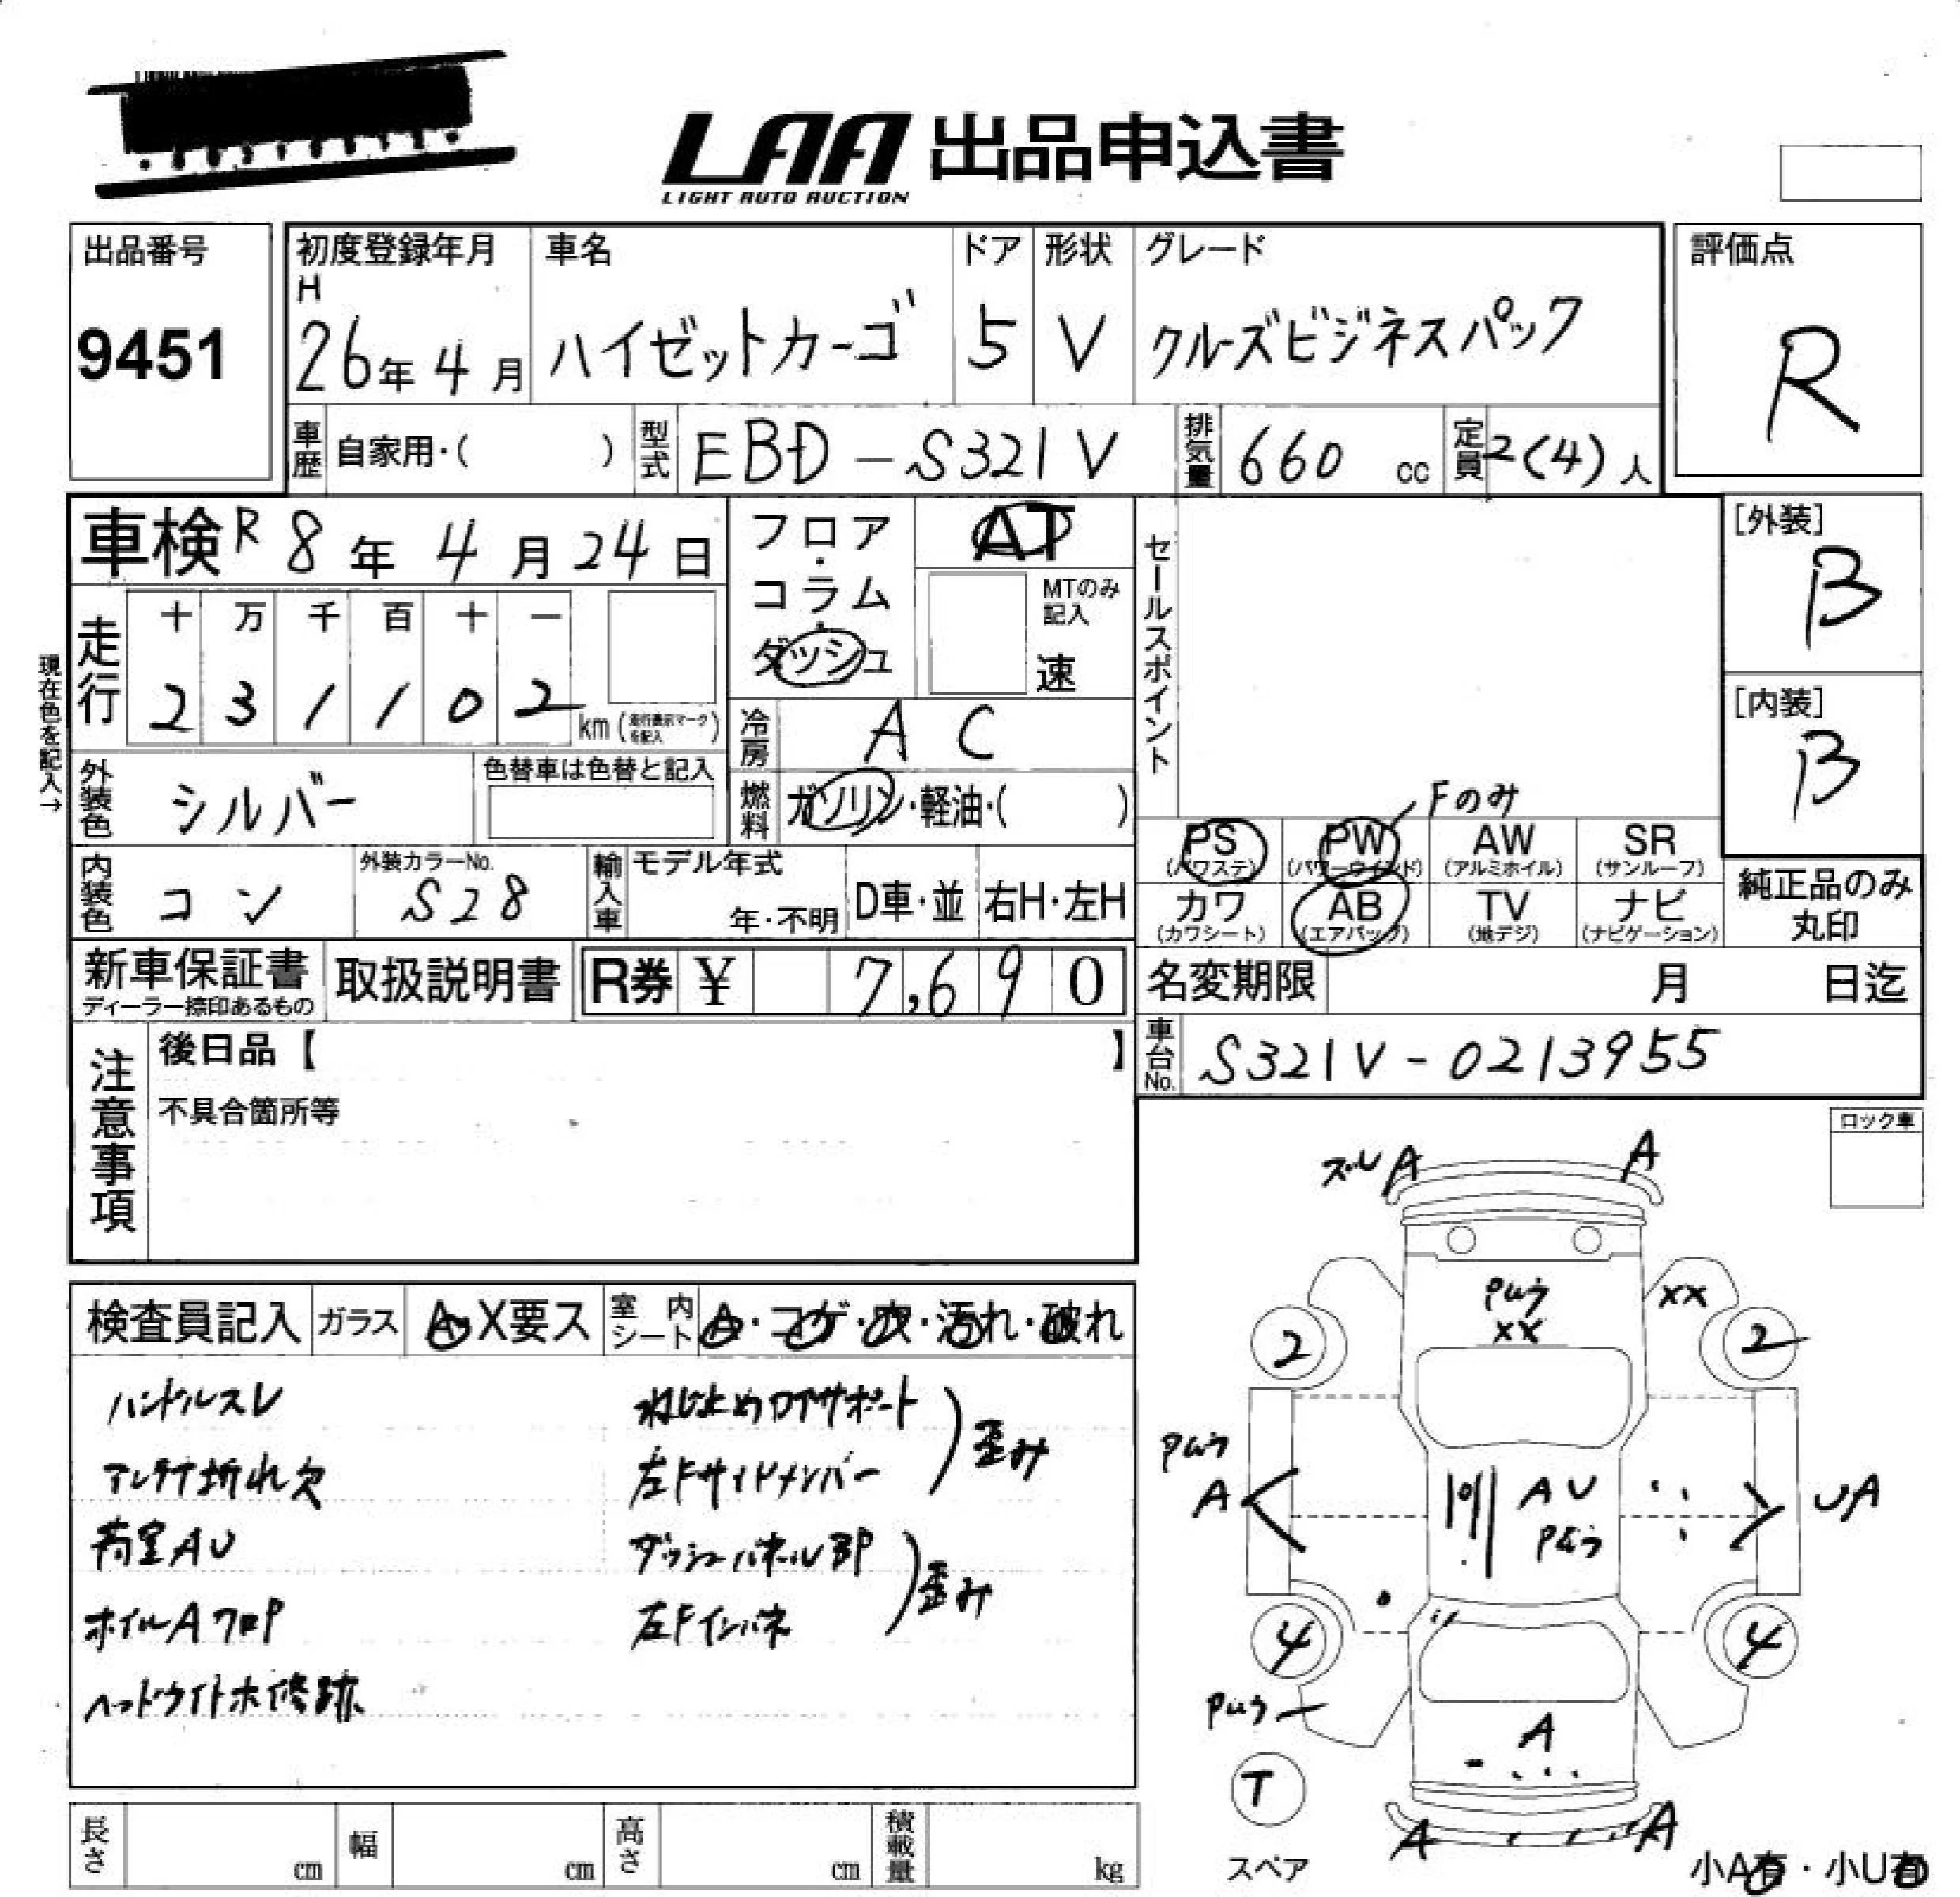 LAA 出品申込書
LIGHT AUTO AUCTION
出品番号
9451
初度登録年月
H
26年 4月
車名
ハイゼットカーゴ
ドア
5
形状
V
グレード
クルーズビジネスパック
評価点
R
車歴 自家用・( )
型式 EBD-S321V
排気量 660 cc
定員 2(4)人
車検 R 8年 4月 24日
フロア・コラム・ダッシュ
AT
MTのみ記入
速
セールスポイント
[外装]
B
[内装]
B
現在色を記入→
走行
十 万 千 百 十 一
2 3 1 1 0 2 km (走行表示マークを記入)
冷房 AC
外装色 シルバー
色替車は色替と記入
燃料 ガソリン・軽油・( )
Fのみ
PS (パワステ)
PW (パワーウインド)
AW (アルミホイル)
SR (サンルーフ)
カワ (カワシート)
AB (エアバッグ)
TV (地デジ)
ナビ (ナビゲーション)
純正品のみ丸印
内装色 コン
外装カラーNo.
S28
輸入車
モデル年式
年・不明
D車・並
右H・左H
新車保証書
ディーラー捺印あるもの
取扱説明書
R券 ¥ 7,690
名変期限 月 日迄
車台No. S321V-0213955
注意事項
後日品【 】
不具合箇所等
ロック車
検査員記入
ガラス
A・X要ス
室内シート
A・コゲ・穴・汚れ・破れ
ハンドルスレ
アンテナ折れ欠
荷室AU
ホイルAワロP
ヘッドライト木修跡
ねじ止めコアサポート
左Fサイドメンバー
歪み
ダッシュパネルBP
左Fインパネ
歪み
ズレ A
A
Pムラ
XX
XX
2
2
Pムラ
A
AU
Pムラ
UA
4
4
Pムラ
A
T
スペア
A
A
小A有・小U有
長さ cm
幅 cm
高さ cm
積載量 kg